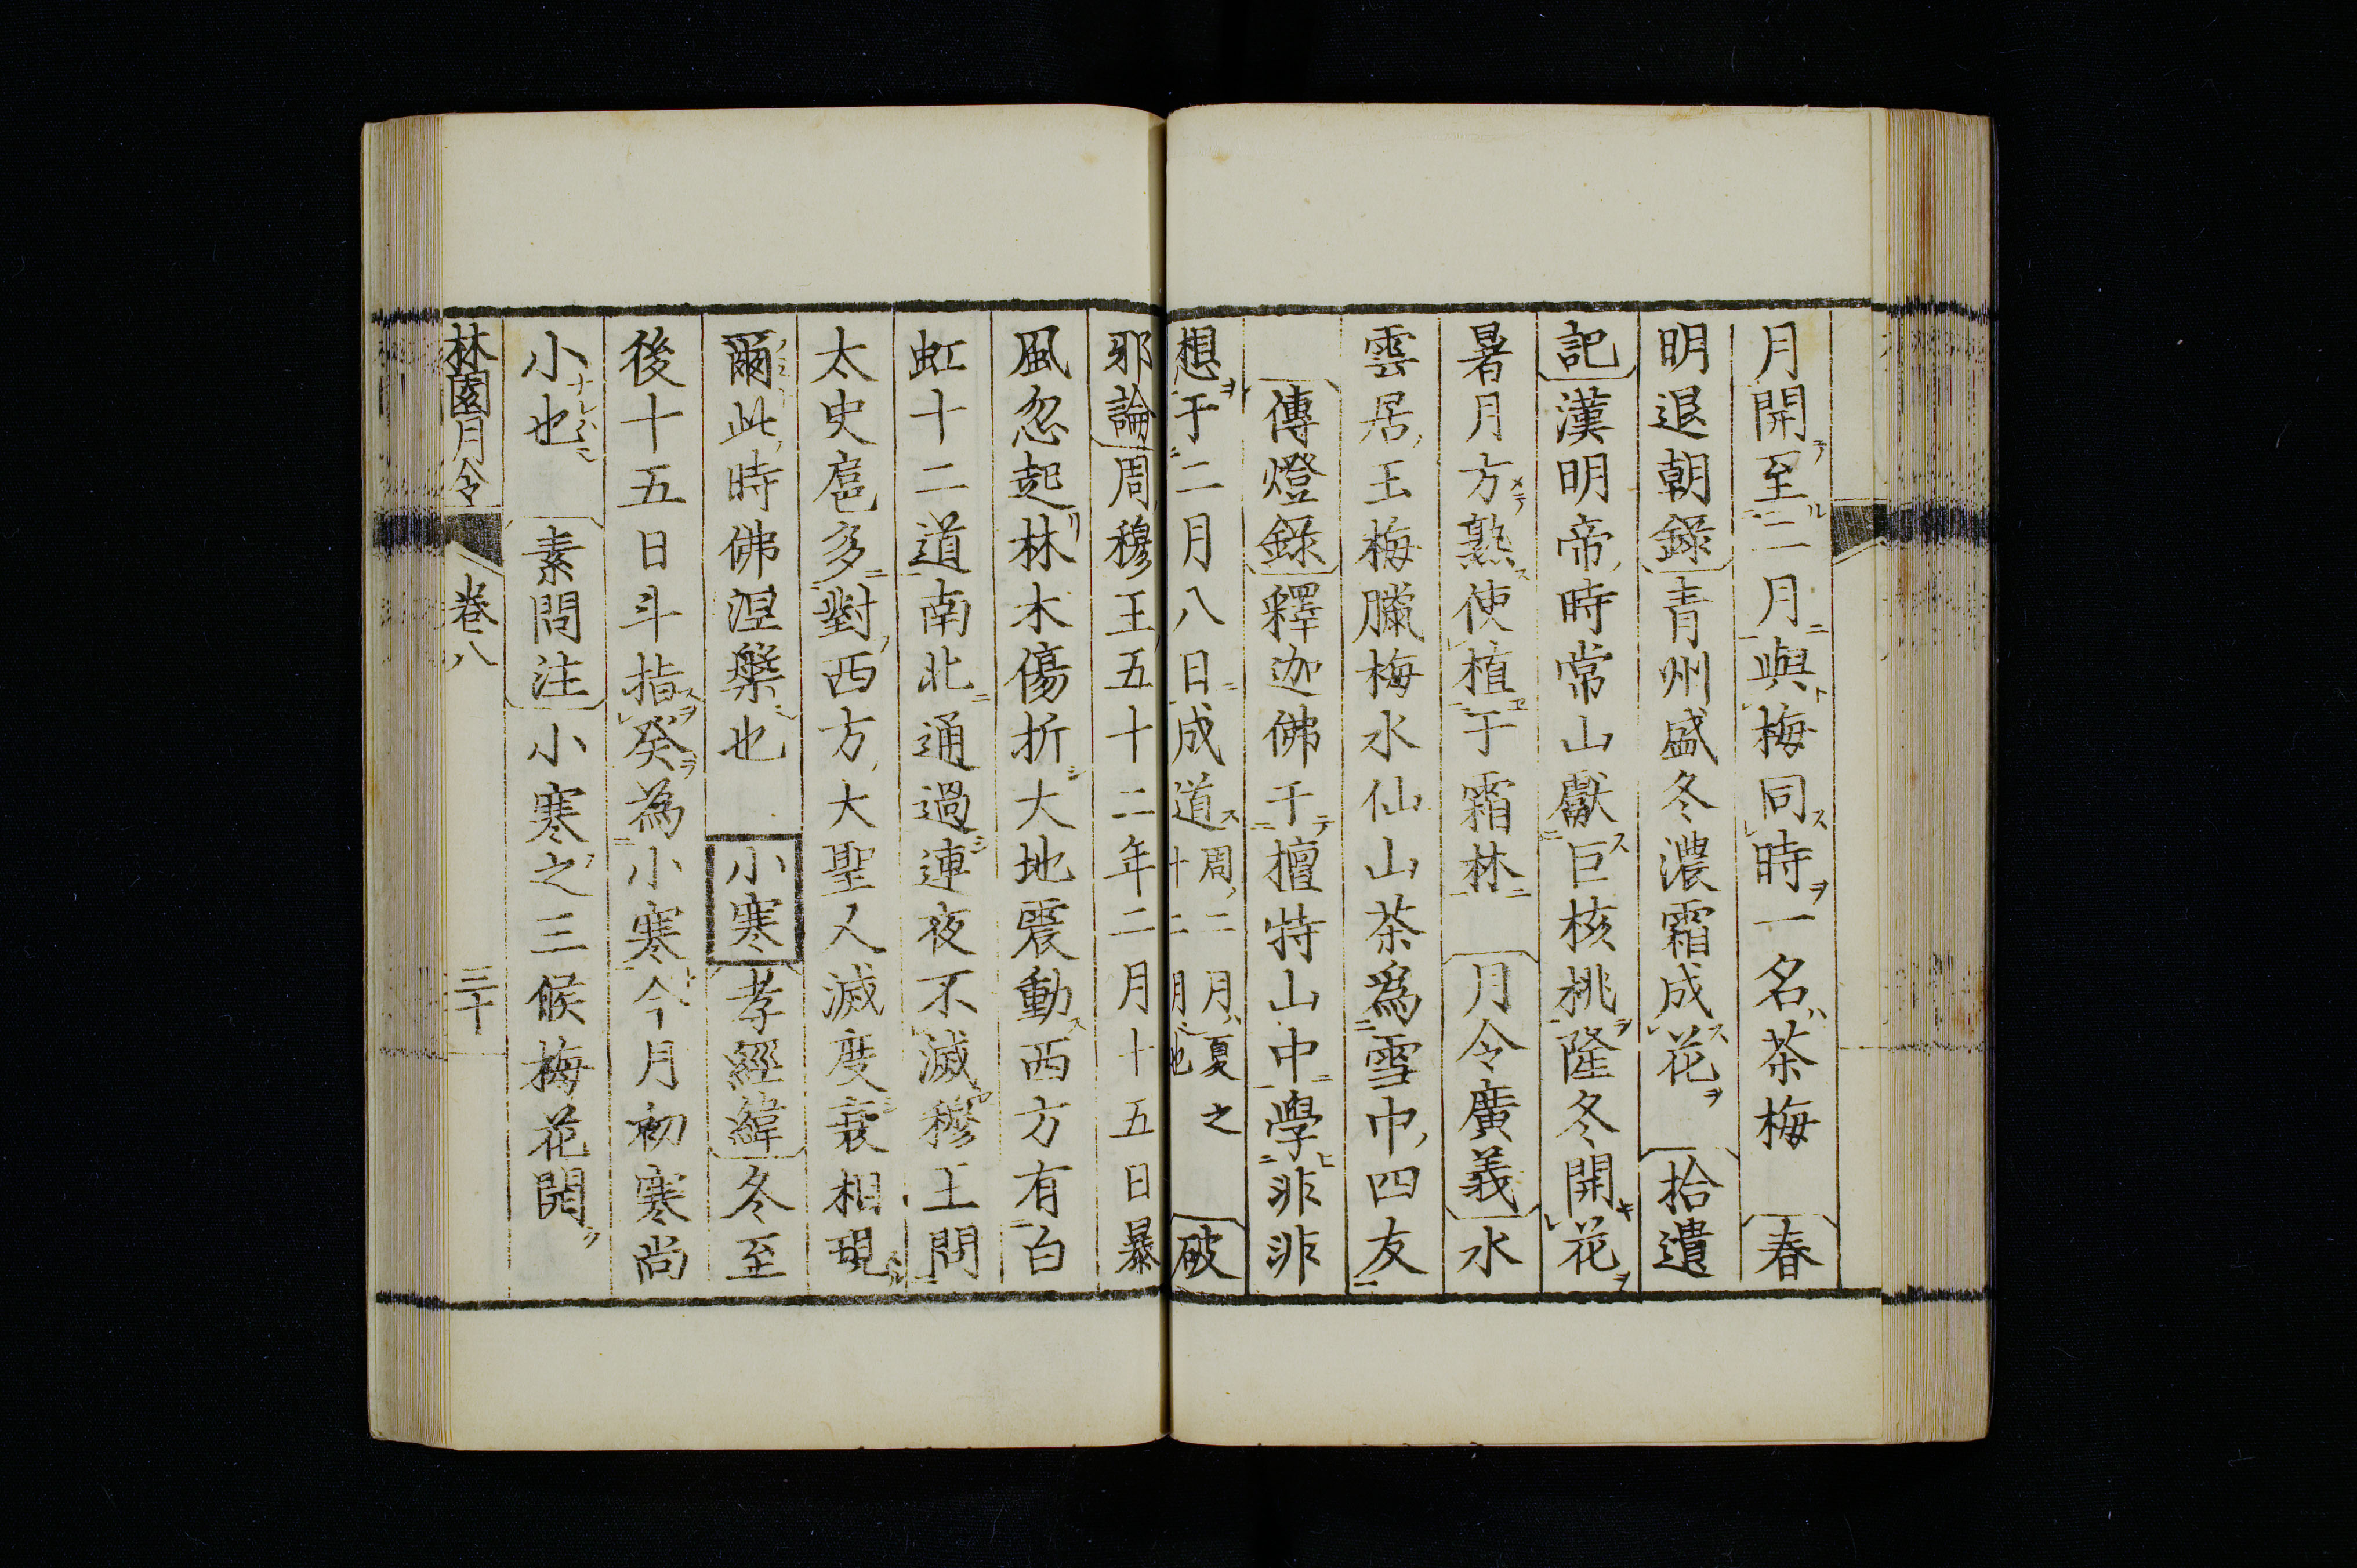 月開至二月與梅同時一名茶梅 春
明退朝錄青州盛冬濃霜成花 拾遺
記漢明帝時常山獻巨核桃隆冬開花
暑月方熟使植于霜林 月令廣義水
雲居玉梅臘梅水仙山茶爲雪中四友
傳燈錄釋迦佛于檀特山中學非非
想于二月八日成道周二月夏之十二月也 破
邪論周穆王五十二年二月十五日暴
風忽起林木傷折大地震動西方有白
虹十二道南北通過連夜不滅穆王問
太史扈多對西方大聖人滅度衰相現
爾此時佛涅槃也 小寒孝經緯冬至
後十五日斗指癸為小寒今月初寒尚
小也 素問注小寒之三候梅花開
林園月令 卷八 三十